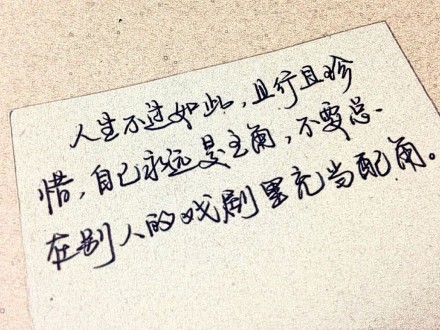 人生不过如此，且行且珍
惜，自己永远是主角，不要总
在别人的戏剧里充当配角。